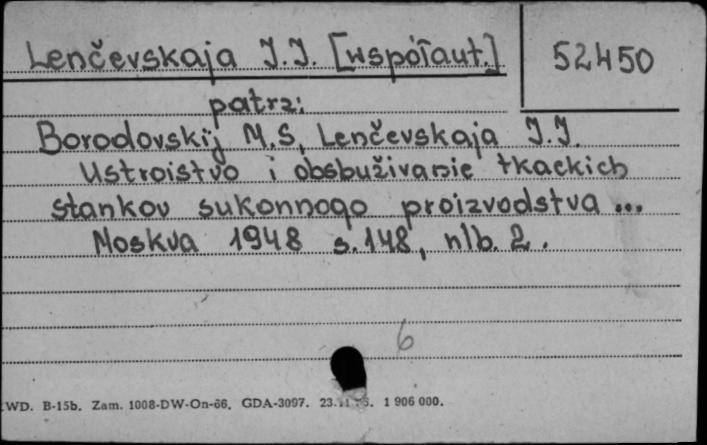 Lenčevskaja J.J. [współaut.]
52450
patrz:
Borodovskij M.S, Lenčevskaja J.J.
Ustroistvo i obsbuživanie tkackich
stankov sukonnogo proizvodstva ...
Moskva 1948 s.148, nlb. 2.
6
WD. B-15b. Zam. 1008-DW-On-66. GDA-3097. 1 906 000.